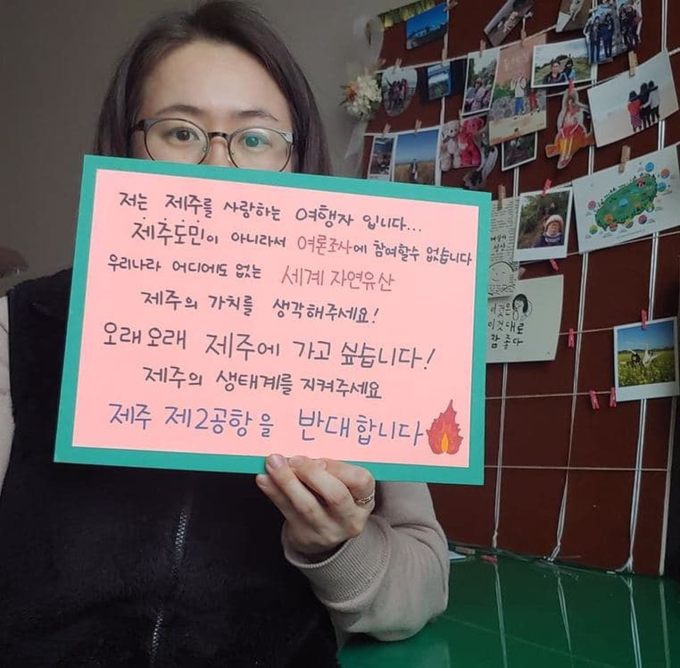 저는 제주를 사랑하는 여행자 입니다...
제주도민이 아니라서 여론조사에 참여할수 없습니다
우리나라 어디에도 없는 세계 자연유산
제주의 가치를 생각해주세요!
오래오래 제주에 가고 싶습니다!
제주의 생태계를 지켜주세요
제주 제2공항을 반대합니다